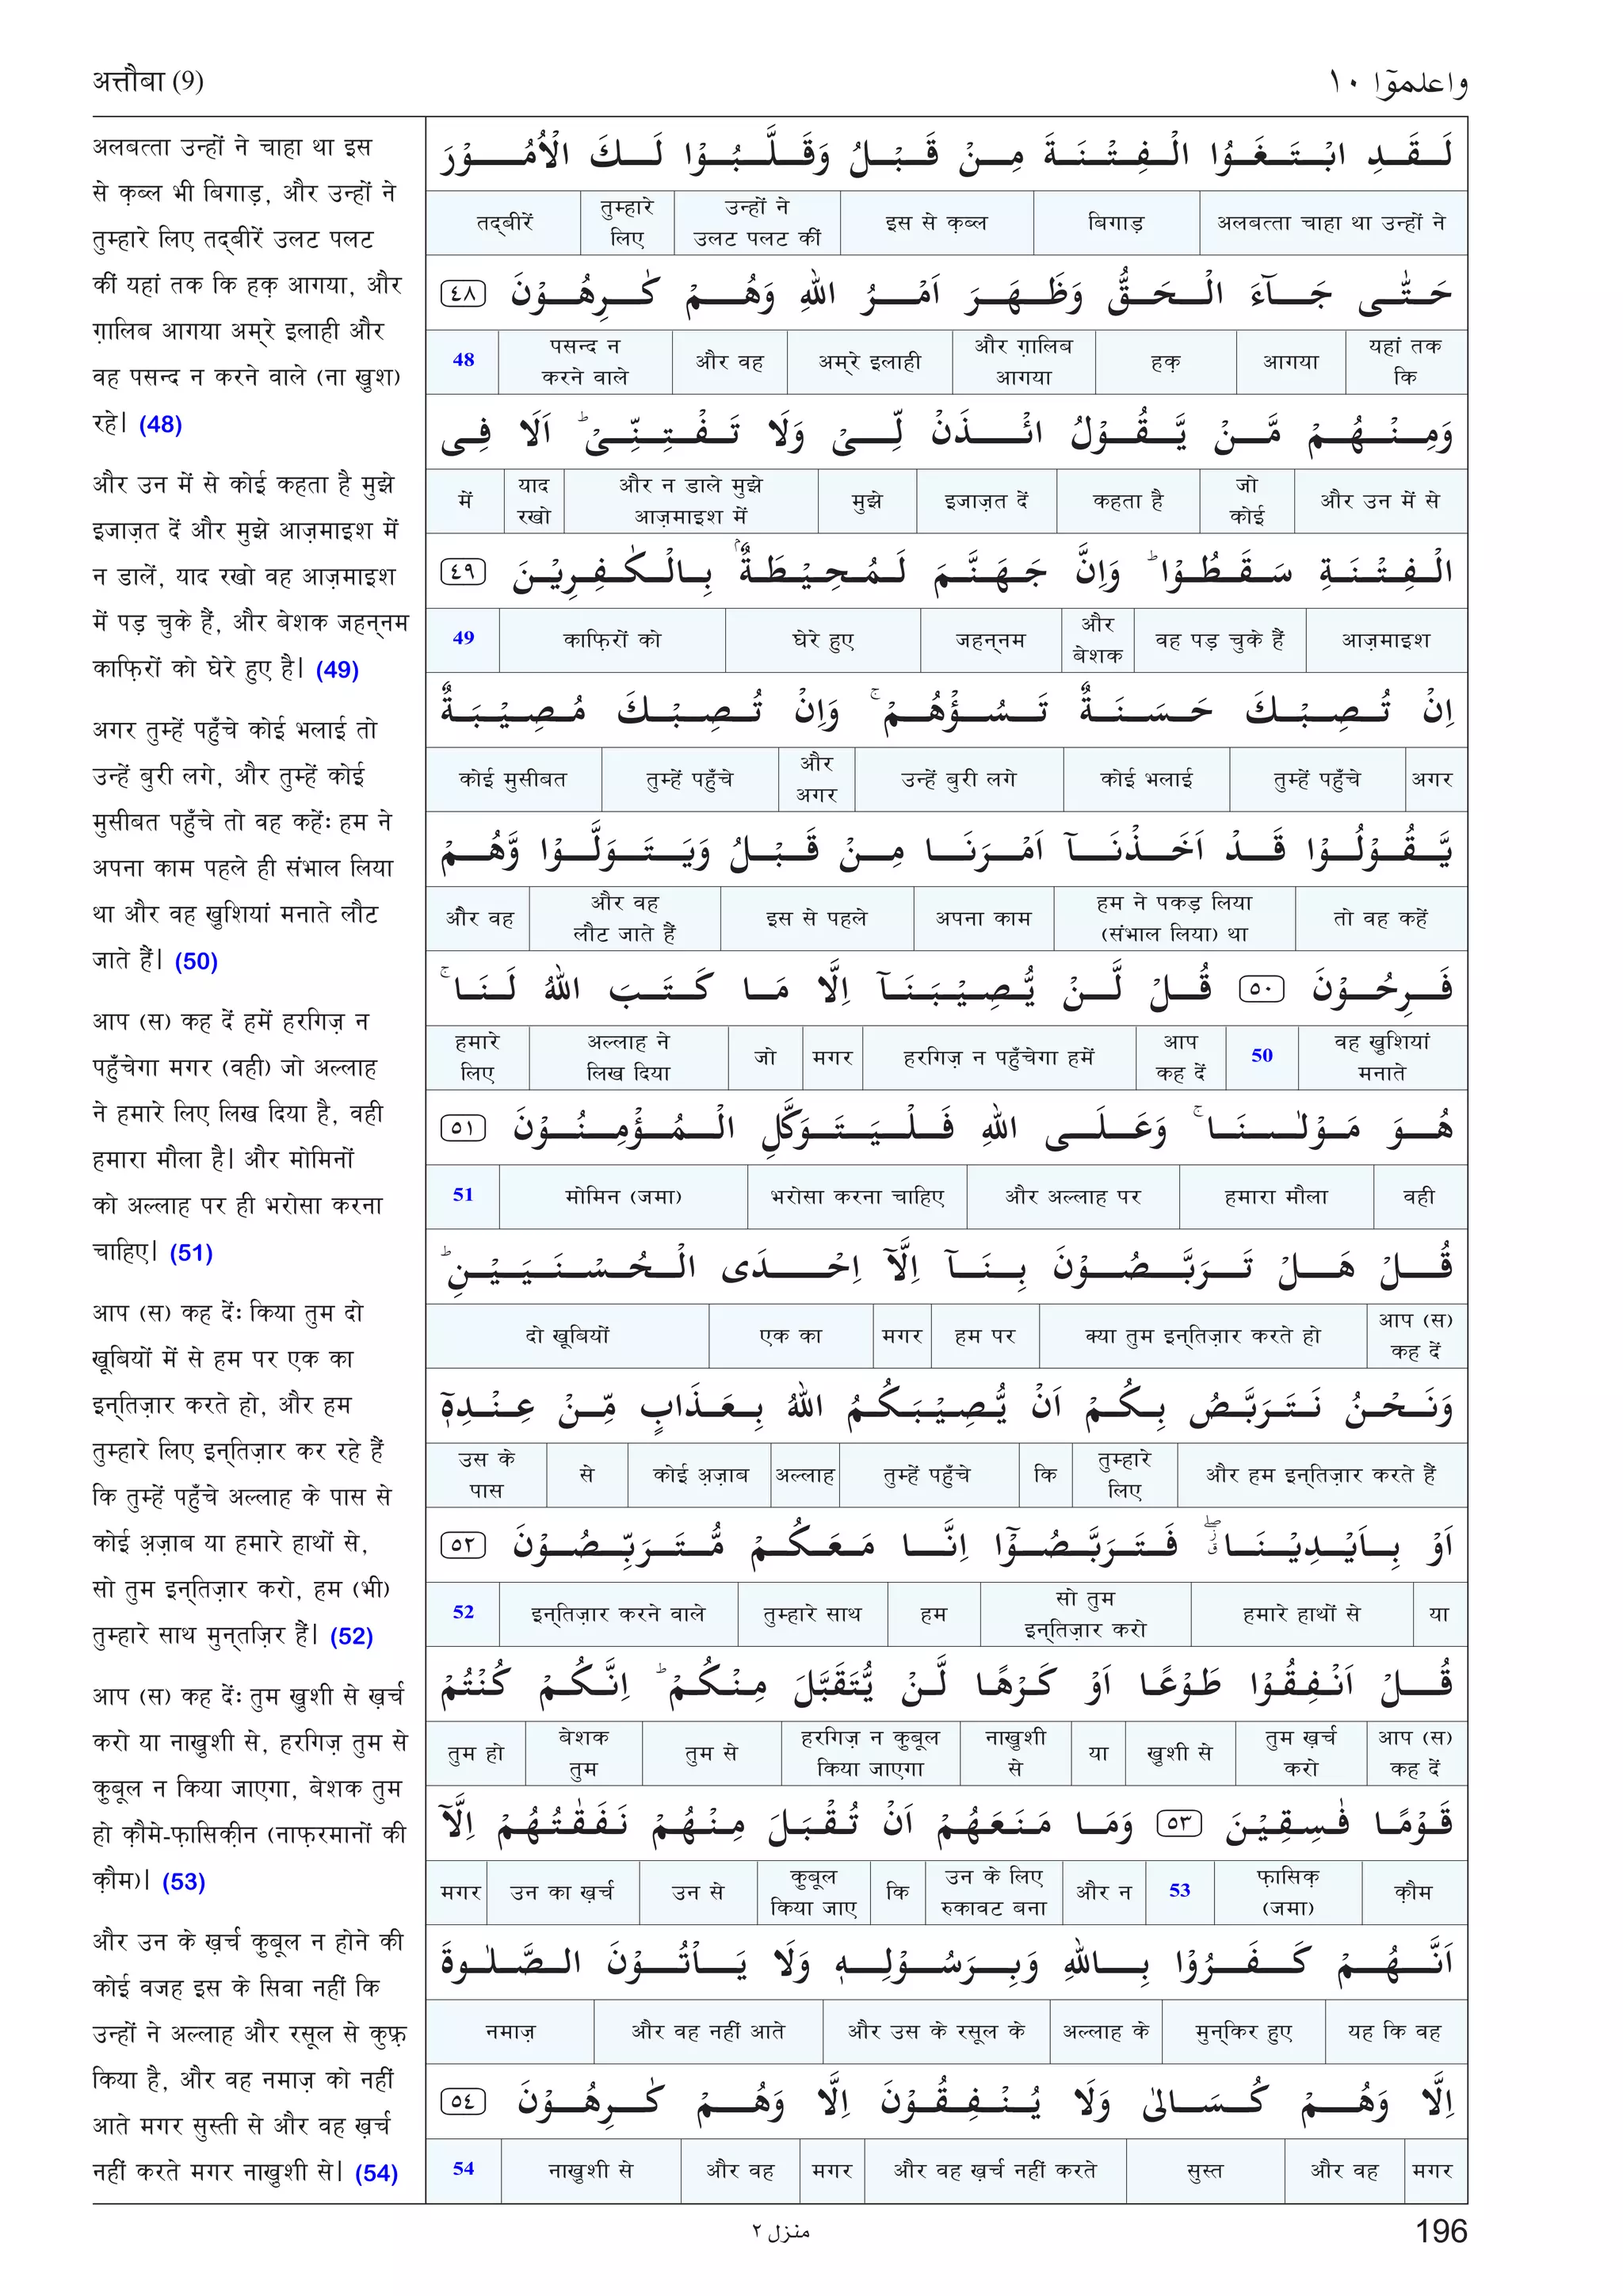 अत्तौबा (9)
واعلموٓا ١٠
अलबत्ता उन्हों ने चाहा था इस
से क़ब्ल भी बिगाड़, और उन्हों ने
तुम्हारे लिए तद्बीरें उलट पलट
कीं यहां तक कि हक़ आगया, और
ग़ालिब आगया अम्रे इलाही और
वह पसन्द न करने वाले (ना खुश)
रहे। (48)
और उन में से कोई कहता है मुझे
इजाज़त दें और मुझे आज़माइश में
न डालें, याद रखो वह आज़माइश
में पड़ चुके हैं, और बेशक जहन्नम
काफ़िरों को घेरे हुए है। (49)
अगर तुम्हें पहुँचे कोई भलाई तो
उन्हें बुरी लगे, और तुम्हें कोई
मुसीबत पहुँचे तो वह कहें: हम ने
अपना काम पहले ही संभाल लिया
था और वह खुशियां मनाते लौट
जाते हैं। (50)
आप (स) कह दें हमें हरगिज़ न
पहुँचेगा मगर (वही) जो अल्लाह
ने हमारे लिए लिख दिया है, वही
हमारा मौला है। और मोमिनों
को अल्लाह पर ही भरोसा करना
चाहिए। (51)
आप (स) कह दें: किया तुम दो
खूबियों में से हम पर एक का
इन्तिज़ार करते हो, और हम
तुम्हारे लिए इन्तिज़ार कर रहे हैं
कि तुम्हें पहुँचे अल्लाह के पास से
कोई अ़ज़ाब या हमारे हाथों से,
सो तुम इन्तिज़ार करो, हम (भी)
तुम्हारे साथ मुन्तज़िर हैं। (52)
आप (स) कह दें: तुम खुशी से ख़र्च
करो या नाखुशी से, हरगिज़ तुम से
कुबूल न किया जाएगा, बेशक तुम
हो क़ौमे-फ़ासिक़ीन (नाफ़रमानों की
क़ौम)। (53)
और उन के ख़र्च कुबूल न होने की
कोई वजह इस के सिवा नहीं कि
उन्हों ने अल्लाह और रसूल से कुफ़्र
किया है, और वह नमाज़ को नहीं
आते मगर सुस्ती से और वह ख़र्च
नहीं करते मगर नाखुशी से। (54)
لَقَدِ ابْتَغَوُا الْفِتْنَةَ مِنْ قَبْلُ وَقَلَّبُوْا لَكَ الْاُمُوْرَ
अलबत्ता चाहा था उन्हों ने बिगाड़ इस से क़ब्ल उन्हों ने उलट पलट कीं तुम्हारे लिए तद्बीरें
حَتّٰى جَآءَ الْحَقُّ وَظَهَرَ اَمْرُ اللّٰهِ وَهُمْ كٰرِهُوْنَ ٤٨
यहां तक कि आगया हक़ और ग़ालिब आगया अम्रे इलाही और वह पसन्द न करने वाले 48
وَمِنْهُمْ مَّنْ يَّقُوْلُ ائْذَنْ لِّىْ وَلَا تَفْتِنِّىْ ؕ اَلَا فِى
और उन में से जो कोई कहता है इजाज़त दें मुझे और न डाले मुझे आज़माइश में याद रखो में
الْفِتْنَةِ سَقَطُوْا ؕ وَاِنَّ جَهَنَّمَ لَمُحِيْطَةٌۢ بِالْكٰفِرِيْنَ ٤٩
आज़माइश वह पड़ चुके हैं और बेशक जहन्नम घेरे हुए काफ़िरों को 49
اِنْ تُصِبْكَ حَسَنَةٌ تَسُؤْهُمْ ۚ وَاِنْ تُصِبْكَ مُصِيْبَةٌ
अगर तुम्हें पहुँचे कोई भलाई उन्हें बुरी लगे और अगर तुम्हें पहुँचे कोई मुसीबत
يَّقُوْلُوْا قَدْ اَخَذْنَآ اَمْرَنَا مِنْ قَبْلُ وَيَتَوَلَّوْا وَّهُمْ
तो वह कहें हम ने पकड़ लिया (संभाल लिया) था अपना काम इस से पहले और वह लौट जाते हैं और वह
فَرِحُوْنَ ٥٠ قُلْ لَّنْ يُّصِيْبَنَآ اِلَّا مَا كَتَبَ اللّٰهُ لَنَا ۚ
वह खुशियां मनाते 50 आप कह दें हरगिज़ न पहुँचेगा हमें मगर जो अल्लाह ने लिख दिया हमारे लिए
هُوَ مَوْلٰىنَا ۚ وَعَلَى اللّٰهِ فَلْيَتَوَكَّلِ الْمُؤْمِنُوْنَ ٥١
वही हमारा मौला और अल्लाह पर भरोसा करना चाहिए मोमिन (जमा) 51
قُلْ هَلْ تَرَبَّصُوْنَ بِنَآ اِلَّآ اِحْدَى الْحُسْنَيَيْنِ ؕ
आप (स) कह दें क्या तुम इन्तिज़ार करते हो हम पर मगर एक का दो खूबियों
وَنَحْنُ نَتَرَبَّصُ بِكُمْ اَنْ يُّصِيْبَكُمُ اللّٰهُ بِعَذَابٍ مِّنْ عِنْدِهٖٓ
और हम इन्तिज़ार करते हैं तुम्हारे लिए कि तुम्हें पहुँचे अल्लाह कोई अ़ज़ाब से उस के पास
اَوْ بِاَيْدِيْنَا ۖ فَتَرَبَّصُوْٓا اِنَّا مَعَكُمْ مُّتَرَبِّصُوْنَ ٥٢
या हमारे हाथों से सो तुम इन्तिज़ार करो हम तुम्हारे साथ इन्तिज़ार करने वाले 52
قُلْ اَنْفِقُوْا طَوْعًا اَوْ كَرْهًا لَّنْ يُّتَقَبَّلَ مِنْكُمْ ؕ اِنَّكُمْ كُنْتُمْ
आप (स) कह दें तुम ख़र्च करो खुशी से या नाखुशी से हरगिज़ न कुबूल किया जाएगा तुम से बेशक तुम तुम हो
قَوْمًا فٰسِقِيْنَ ٥٣ وَمَا مَنَعَهُمْ اَنْ تُقْبَلَ مِنْهُمْ نَفَقٰتُهُمْ اِلَّآ
क़ौम फ़ासिक़ (जमा) 53 और न उन के लिए रुकावट बना कि कुबूल किया जाए उन से उन का ख़र्च मगर
اَنَّهُمْ كَفَرُوْا بِاللّٰهِ وَبِرَسُوْلِهٖ وَلَا يَاْتُوْنَ الصَّلٰوةَ
यह कि वह मुन्किर हुए अल्लाह के और उस के रसूल के और वह नहीं आते नमाज़
اِلَّا وَهُمْ كُسَالٰى وَلَا يُنْفِقُوْنَ اِلَّا وَهُمْ كٰرِهُوْنَ ٥٤
मगर और वह सुस्त और वह ख़र्च नहीं करते मगर और वह नाखुशी से 54
منزل ٢
196